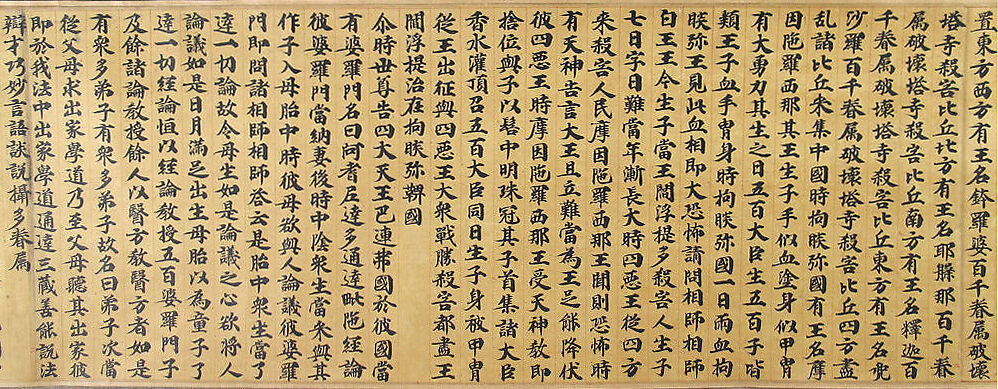 置東方西方有王名鉢羅婆百千眷屬破壞
塔寺殺害比丘北方有王名耶槃那百千眷
屬破壞塔寺殺害比丘南方有王名釋迦百
千眷屬破壞塔寺殺害比丘東方有王名兜
沙羅百千眷屬破壞塔寺殺害比丘四方盡
乱諸比丘来集中國時拘睒弥國有王名摩
因陁羅西那其王生子手似血塗身似甲冑
有大勇力其生之日五百大臣生五百子皆
類王子血手冑身時拘睒弥國一日雨血拘
睒弥王見此血相即大恐怖請問相師相師
白王王今生子當王閻浮提多殺害人生子
七日字曰難當年漸長大時四惡王從四方
来殺害人民摩因陁羅西那王聞則恐怖時
有天神告言大王且立難當為王足能降伏
彼四惡王時摩因陁羅西那王受天神教即
捨位與子以髻中明珠冠其子首集諸大臣
香水灌頂召五百大臣同日生子身被甲冑
從王出征與四惡王大衆戰勝殺害都盡王
閻浮提治在拘睒弥國
尒時世尊告四大天王巴連弗國於彼國當
有婆羅門名曰阿耆尼達多通達毗陁經論
彼婆羅門當納妻後時中陰衆生當来與其
作子入母胎中時彼母欲與人論議彼婆羅
門即問諸相師相師荅云是胎中衆生當了
達一切論故令母生如是論議之心欲將人
論議如是日月滿足出生母胎以為童子了
達一切經論恒以經論教授五百婆羅門子
及餘諸論教授餘人以醫方教醫方者如是
有衆多弟子有衆多弟子故名曰弟子次當
從父母求出家學道乃至父母聽其出家彼
即於我法中出家學道通達三藏善能說法
辯才巧妙言語談說攝多眷屬